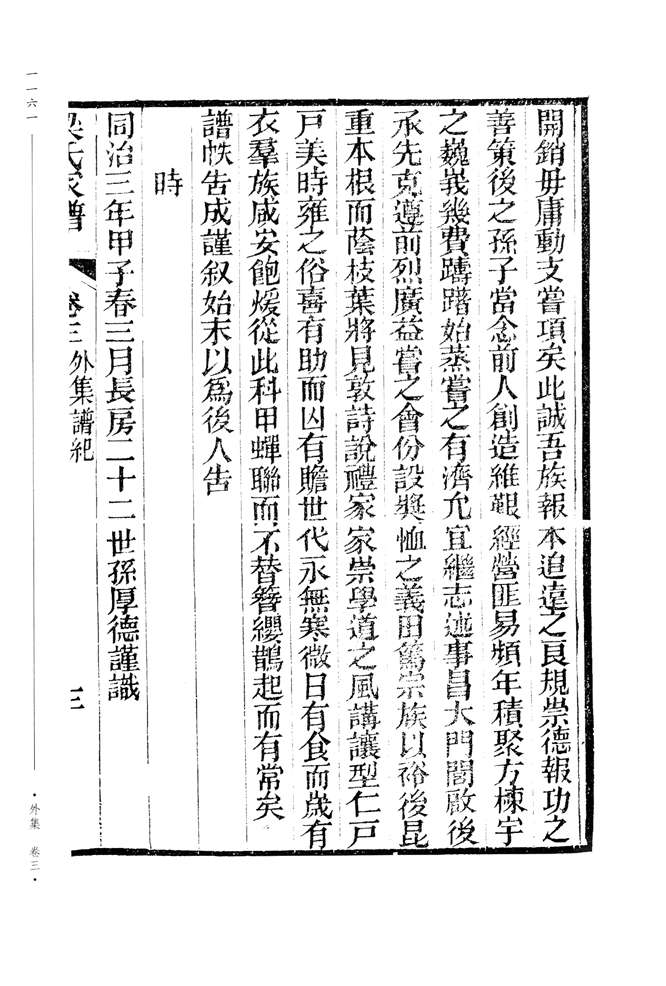 開銷毋庸動支嘗項矣此誠吾族報本追遠之良規崇德報功之
善策後之孫子當念前人創造維艱經營匪易頻年積聚方棟宇
之巍峩幾費躊躇始蒸嘗之有濟允宜繼志述事昌大門閭啟後
承先克遵前烈廣益嘗之會份設奬恤之義田篤宗族以裕後昆
重本根而蔭枝葉將見敦詩說禮家家崇學道之風講讓型仁戸
戸美時雍之俗喜有助而凶有贍世代永無寒微日有食而歲有
衣羣族咸安飽煖從此科甲蟬聯而不替簪纓鵲起而有常矣
譜帙告成謹叙始末以為後人告
時
同治三年甲子春三月長房二十二世孫厚德謹識
梁氏家譜 卷三外集譜紀 三
一一六一
·外集 卷三·